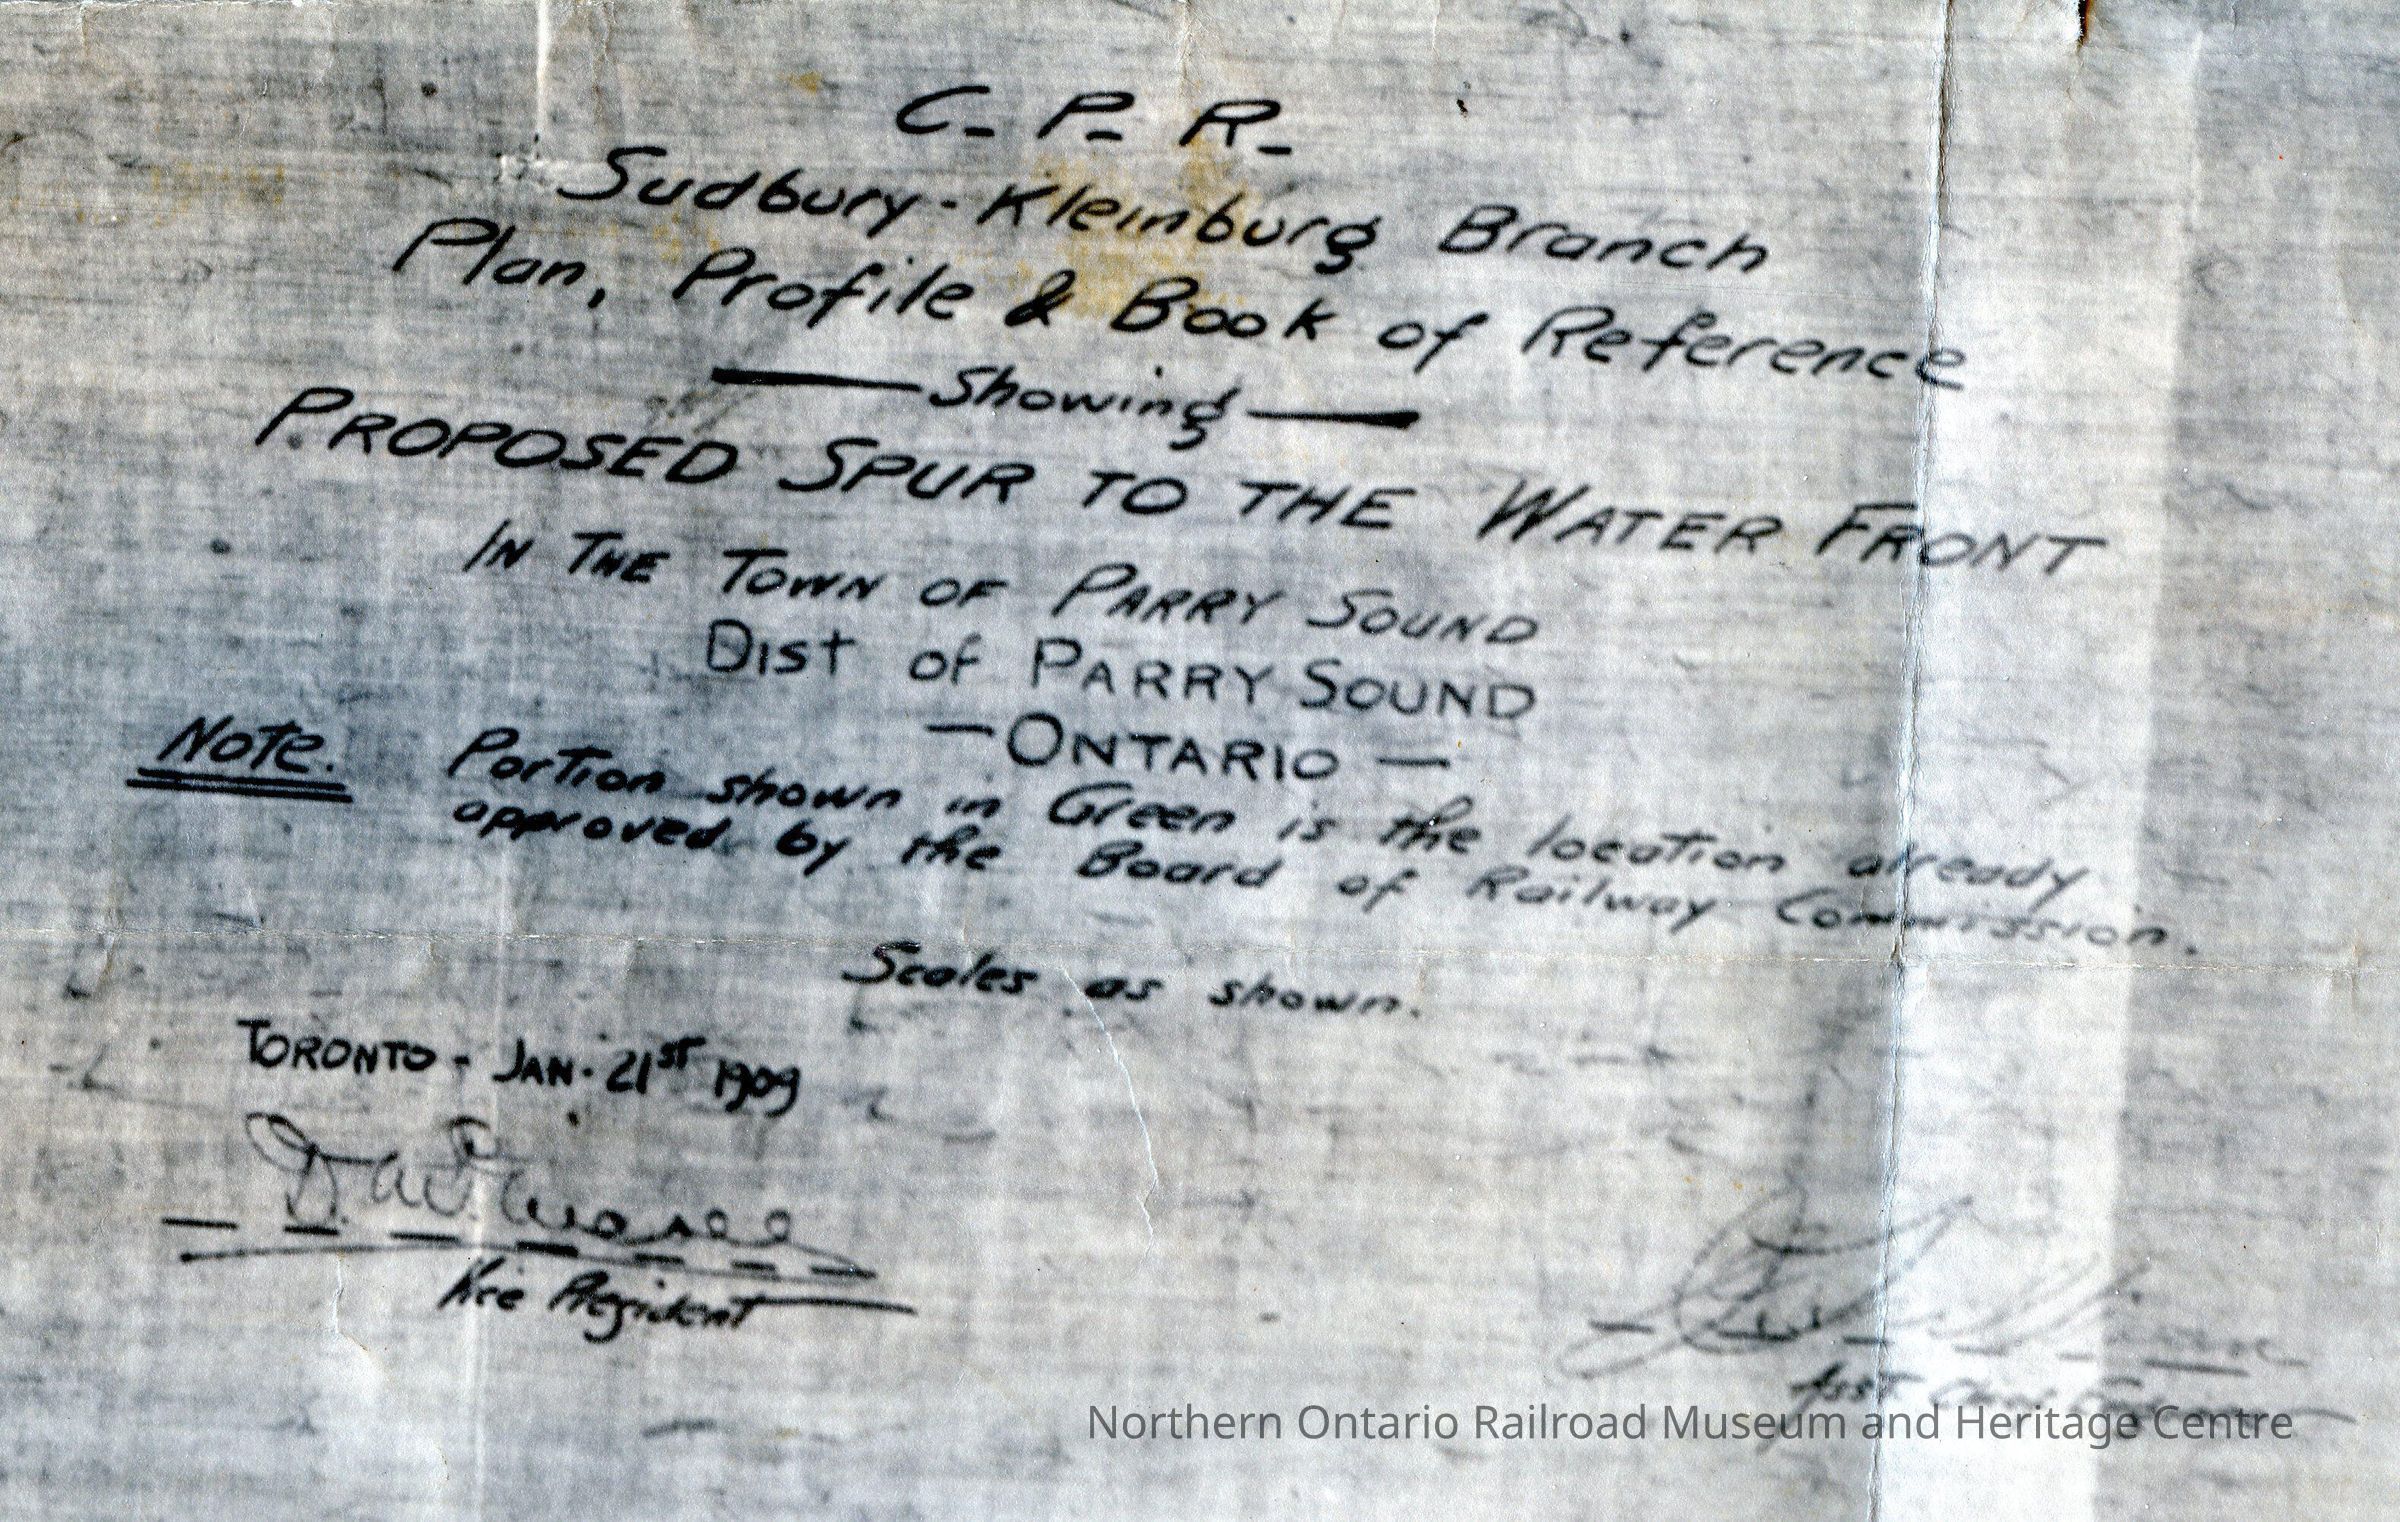 C. P. R.
Sudbury-Kleinburg Branch
Plan, Profile & Book of Reference
— Showing —
PROPOSED SPUR TO THE WATER FRONT
IN THE TOWN OF PARRY SOUND
Dist of PARRY SOUND
— ONTARIO —
Note. Portion shown in Green is the location already
approved by the Board of Railway Commission.
Scales as shown.
TORONTO - JAN. 21ST 1909
Vice President
Asst Chief Engineer
Northern Ontario Railroad Museum and Heritage Centre